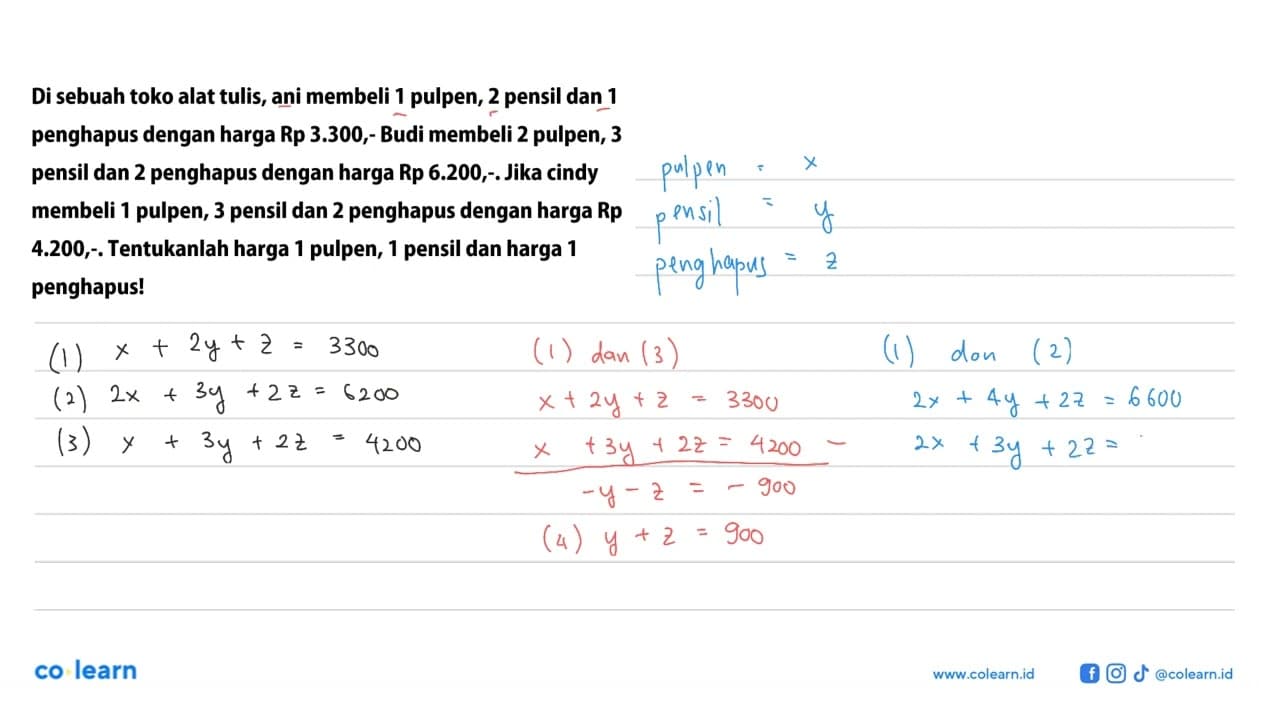 Di sebuah toko alat tulis, ani membeli 1 pulpen, 2 pensil dan 1
penghapus dengan harga Rp 3.300,- Budi membeli 2 pulpen, 3
pensil dan 2 penghapus dengan harga Rp 6.200,-. Jika cindy
membeli 1 pulpen, 3 pensil dan 2 penghapus dengan harga Rp
4.200,-. Tentukanlah harga 1 pulpen, 1 pensil dan harga 1
penghapus!
pulpen = x
pensil = y
penghapus = z
(1) x + 2y + z = 3300
(2) 2x + 3y + 2z = 6200
(3) x + 3y + 2z = 4200
(1) dan (3)
x + 2y + z = 3300
x + 3y + 2z = 4200 -
-y - z = - 900
(4) y + z = 900
(1) dan (2)
2x + 4y + 2z = 6600
2x + 3y + 2z =
co learn
www.colearn.id
@colearn.id